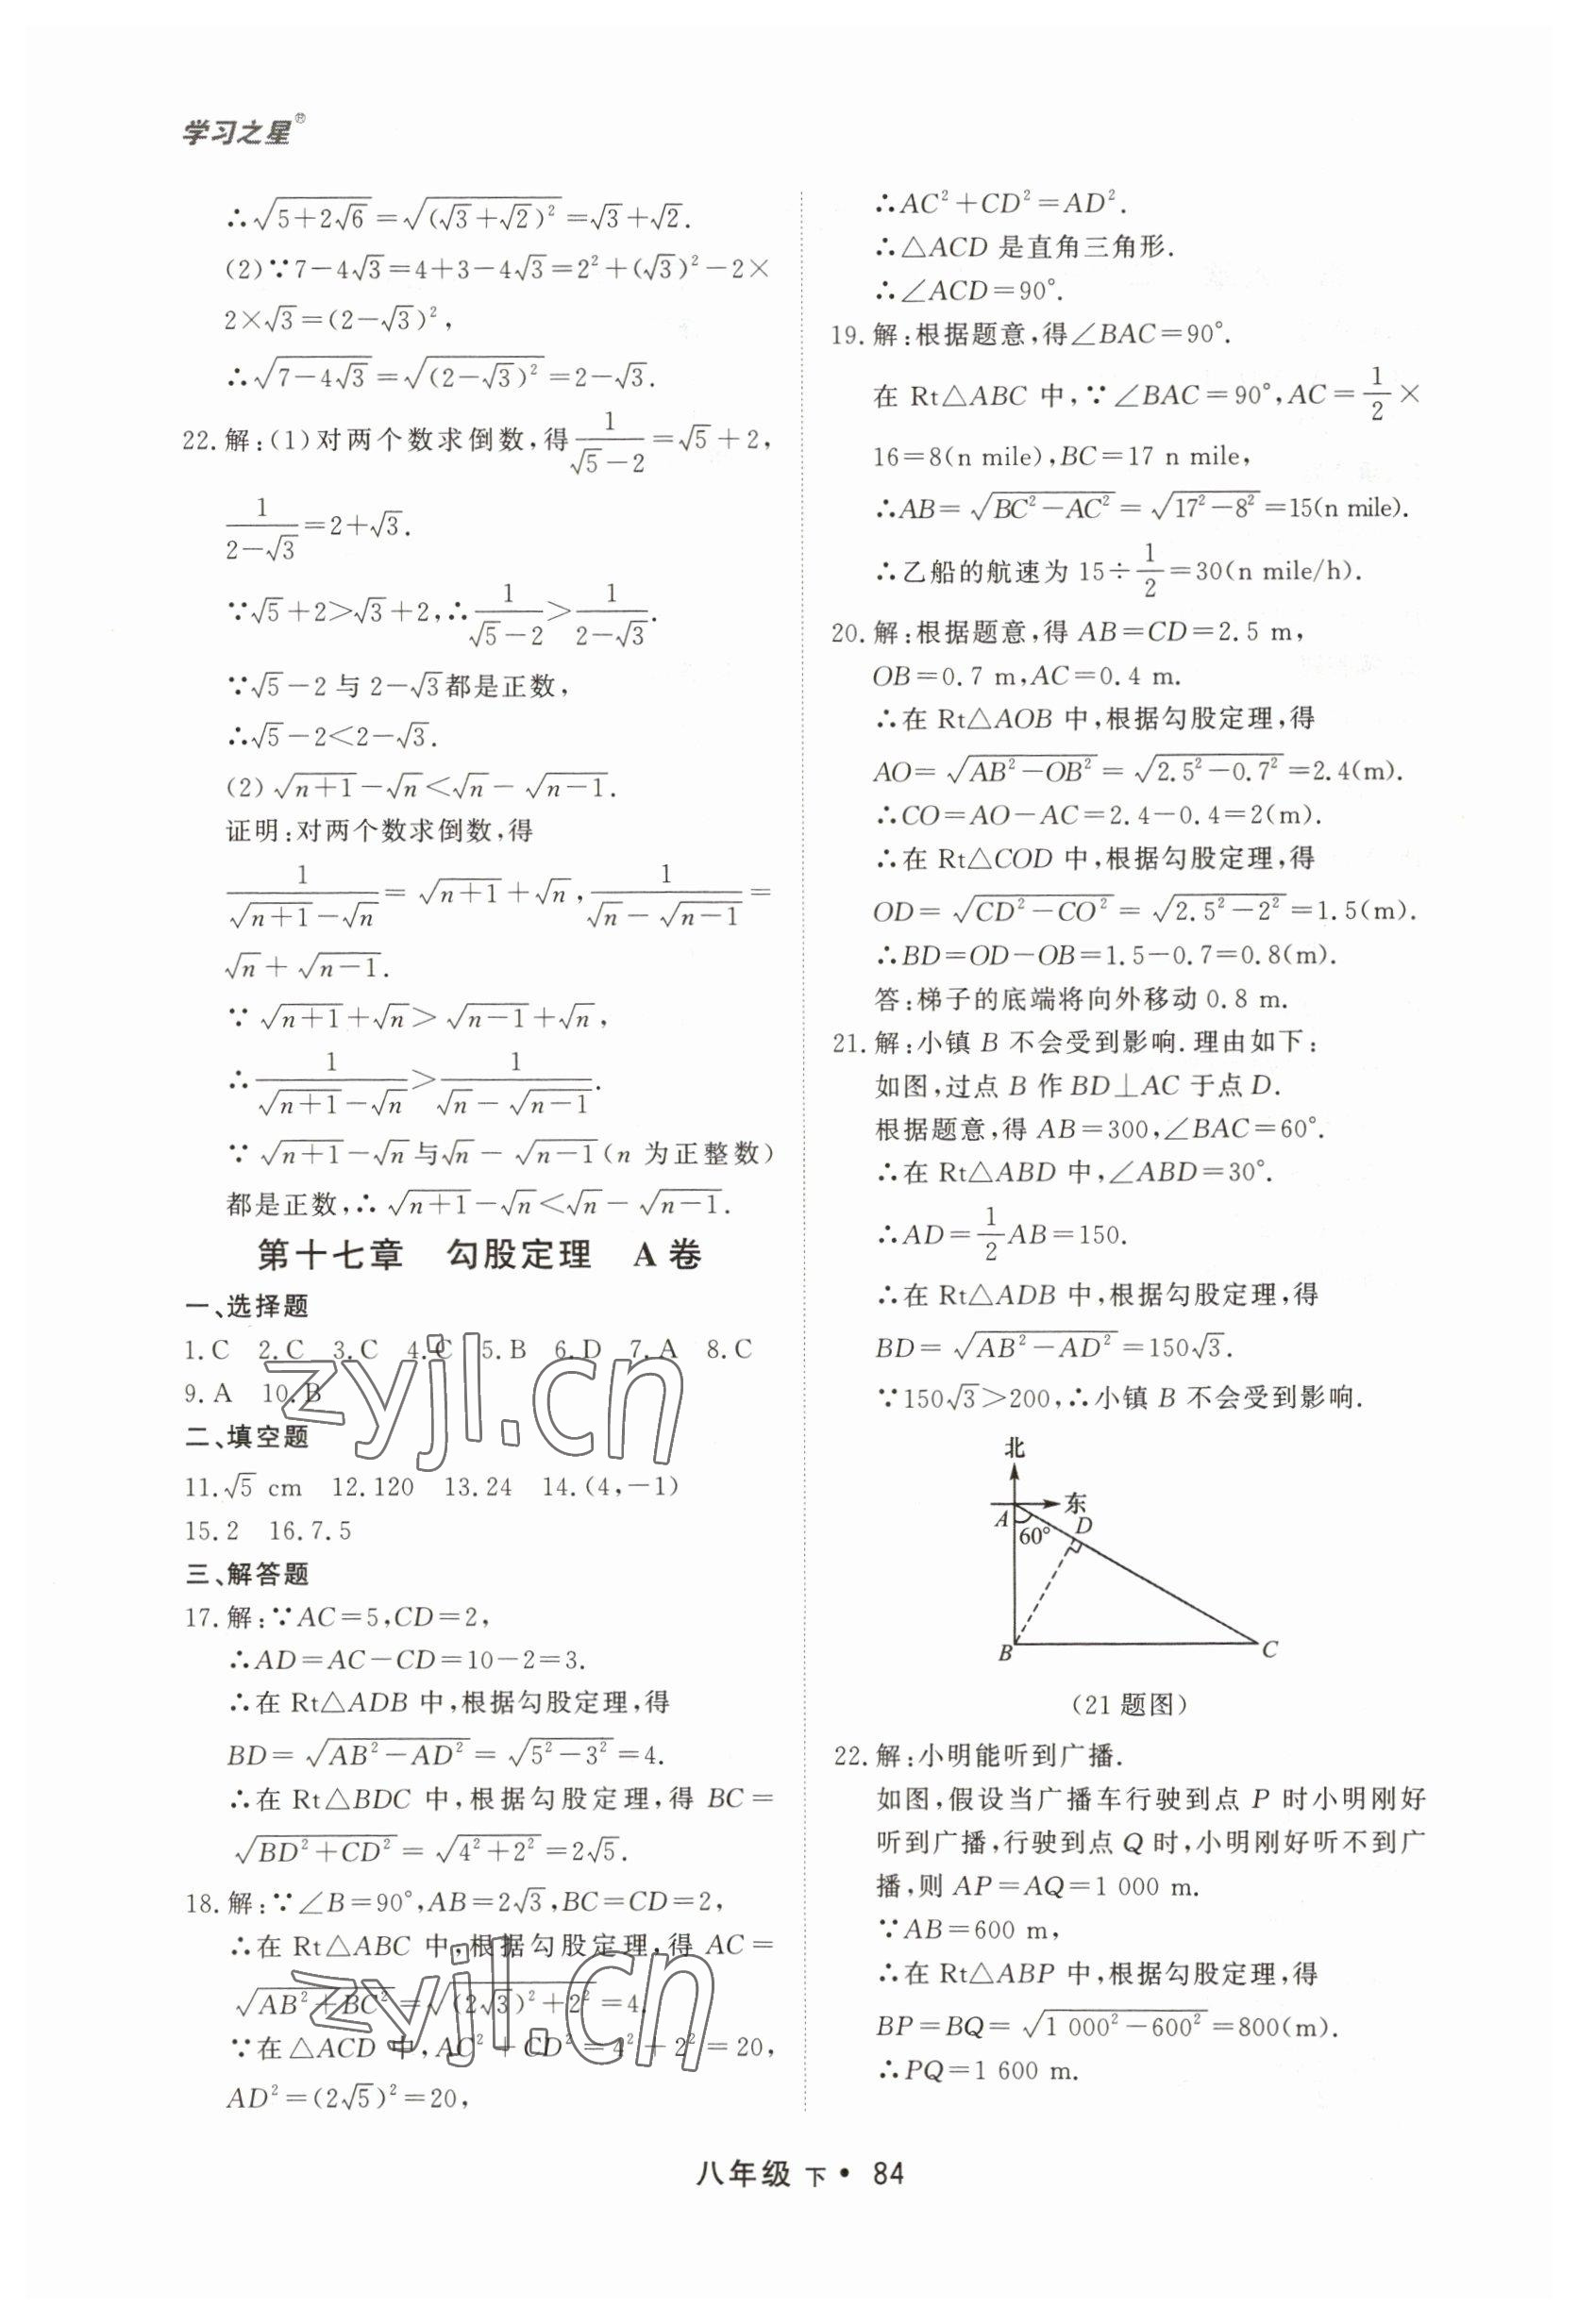 学习之星®
∴√(5+2√6)=√((√3+√2)²)=√3+√2.
(2)∵7-4√3=4+3-4√3=2²+(√3)²-2×
2×√3=(2-√3)²,
∴√(7-4√3)=√((2-√3)²)=2-√3.
22.解:(1)对两个数求倒数,得1/(√5-2)=√5+2,
1/(2-√3)=2+√3.
∵√5+2>√3+2,∴1/(√5-2)>1/(2-√3).
∵√5-2与2-√3都是正数,
∴√5-2<2-√3.
(2)√(n+1)-√n<√n-√(n-1).
证明:对两个数求倒数,得
1/(√(n+1)-√n)=√(n+1)+√n,1/(√n-√(n-1))=
√n+√(n-1).
∵√(n+1)+√n>√(n-1)+√n,
∴1/(√(n+1)-√n)>1/(√n-√(n-1)).
∵√(n+1)-√n与√n-√(n-1)(n为正整数)
都是正数,∴√(n+1)-√n<√n-√(n-1).
第十七章 勾股定理 A卷
一、选择题
1.C 2.C 3.C 4.C 5.B 6.D 7.A 8.C
9.A 10.B
二、填空题
11.√5 cm 12.120 13.24 14.(4,-1)
15.2 16.7.5
三、解答题
17.解:∵AC=5,CD=2,
∴AD=AC-CD=10-2=3.
∴在Rt△ADB中,根据勾股定理,得
BD=√(AB²-AD²)=√(5²-3²)=4.
∴在Rt△BDC中,根据勾股定理,得BC=
√(BD²+CD²)=√(4²+2²)=2√5.
18.解:∵∠B=90°,AB=2√3,BC=CD=2,
∴在Rt△ABC中,根据勾股定理,得AC=
√(AB²+BC²)=√((2√3)²+2²)=4.
∵在△ACD中,AC²+CD²=4²+2²=20,
AD²=(2√5)²=20,
∴AC²+CD²=AD².
∴△ACD是直角三角形.
∴∠ACD=90°.
19.解:根据题意,得∠BAC=90°.
在Rt△ABC中,∵∠BAC=90°,AC=1/2×
16=8(n mile),BC=17 n mile,
∴AB=√(BC²-AC²)=√(17²-8²)=15(n mile).
∴乙船的航速为15÷1/2=30(n mile/h).
20.解:根据题意,得AB=CD=2.5 m,
OB=0.7 m,AC=0.4 m.
∴在Rt△AOB中,根据勾股定理,得
AO=√(AB²-OB²)=√(2.5²-0.7²)=2.4(m).
∴CO=AO-AC=2.4-0.4=2(m).
∴在Rt△COD中,根据勾股定理,得
OD=√(CD²-CO²)=√(2.5²-2²)=1.5(m).
∴BD=OD-OB=1.5-0.7=0.8(m).
答:梯子的底端将向外移动0.8 m.
21.解:小镇B不会受到影响.理由如下:
如图,过点B作BD⊥AC于点D.
根据题意,得AB=300,∠BAC=60°.
∴在Rt△ABD中,∠ABD=30°.
∴AD=1/2AB=150.
∴在Rt△ADB中,根据勾股定理,得
BD=√(AB²-AD²)=150√3.
∵150√3>200,∴小镇B不会受到影响.
北
东
A
60°
D
B
C
(21题图)
22.解:小明能听到广播.
如图,假设当广播车行驶到点P时小明刚好
听到广播,行驶到点Q时,小明刚好听不到广
播,则AP=AQ=1 000 m.
∵AB=600 m,
∴在Rt△ABP中,根据勾股定理,得
BP=BQ=√(1 000²-600²)=800(m).
∴PQ=1 600 m.
zyjl.cn
zyjl.cn
八年级 下·84